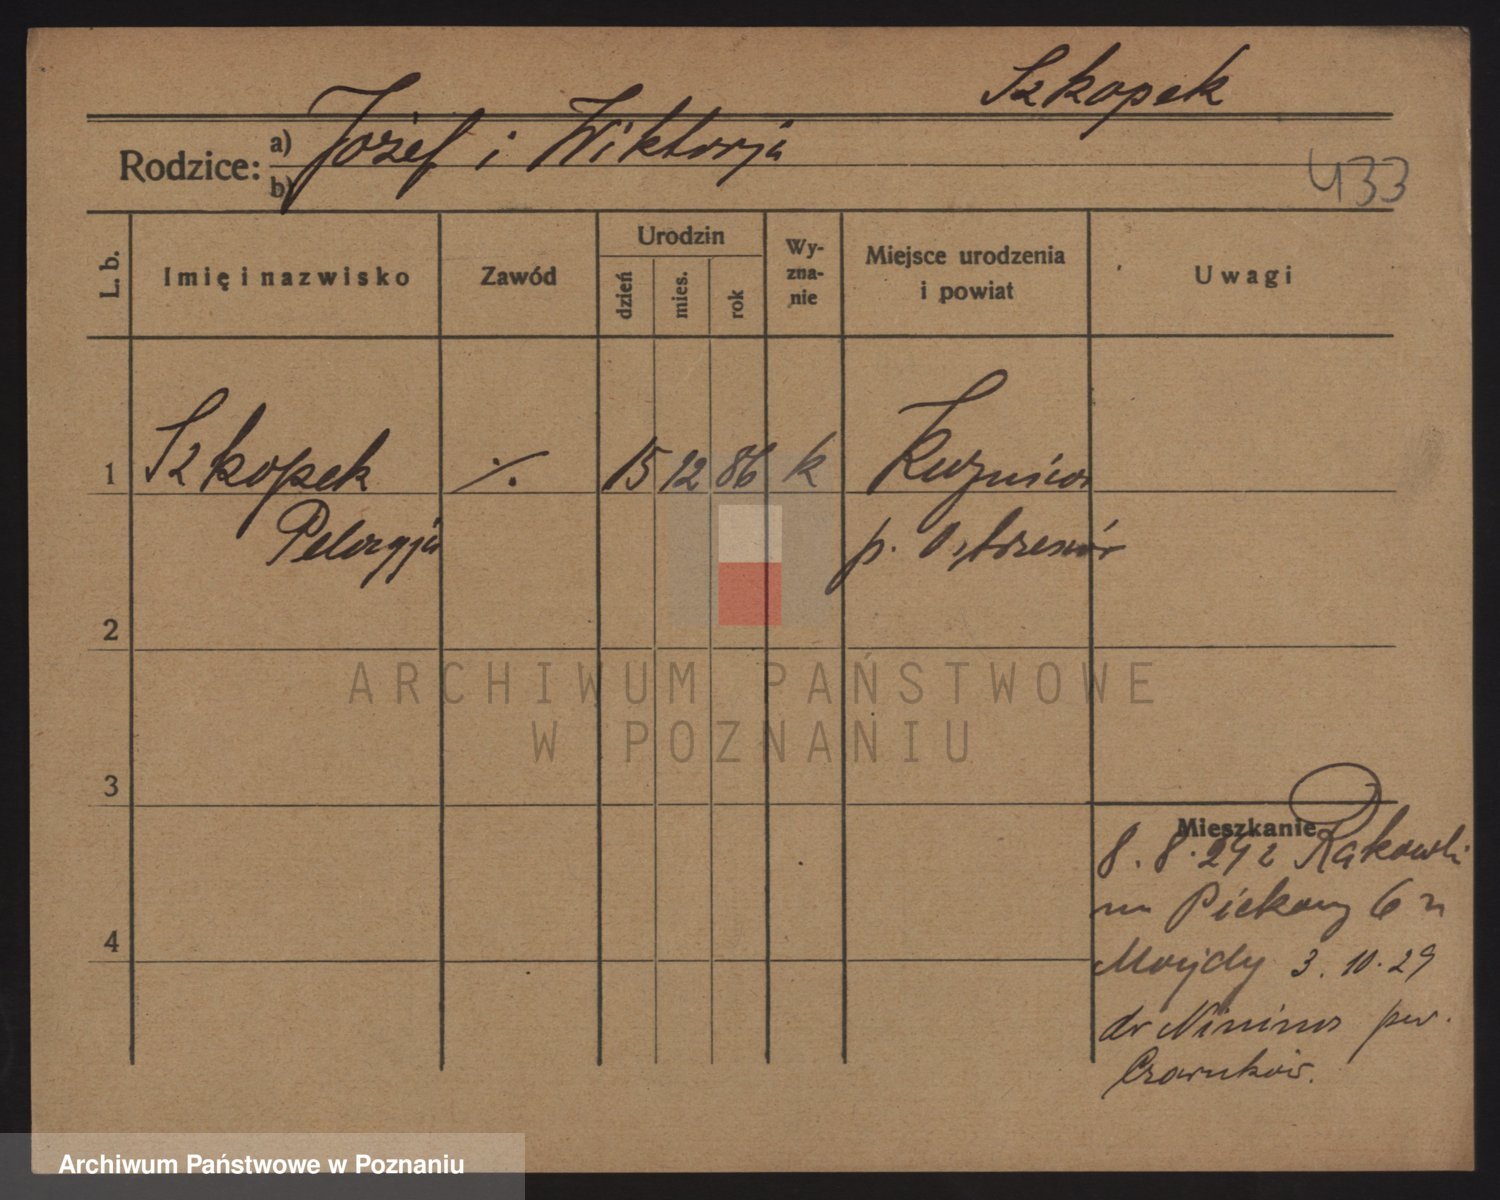 Szkopek
Rodzice: a) Józef i Wiktorja
b)
433
L. b.
Imię i nazwisko
Zawód
Urodzin
dzień
mies.
rok
Wy-
zna-
nie
Miejsce urodzenia
i powiat
Uwagi
1
Szkopek
Pelagja
·/.
15 12 86 k
Kuźnica
p. Ostrzeszów
2
ARCHIWUM PAŃSTWOWE
W POZNANIU
3
4
Mieszkanie
8. 8. 29 z Rąkowski
na Piekary 6 u
3. 10. 29
do pow.
Czarnków.
Archiwum Państwowe w Poznaniu